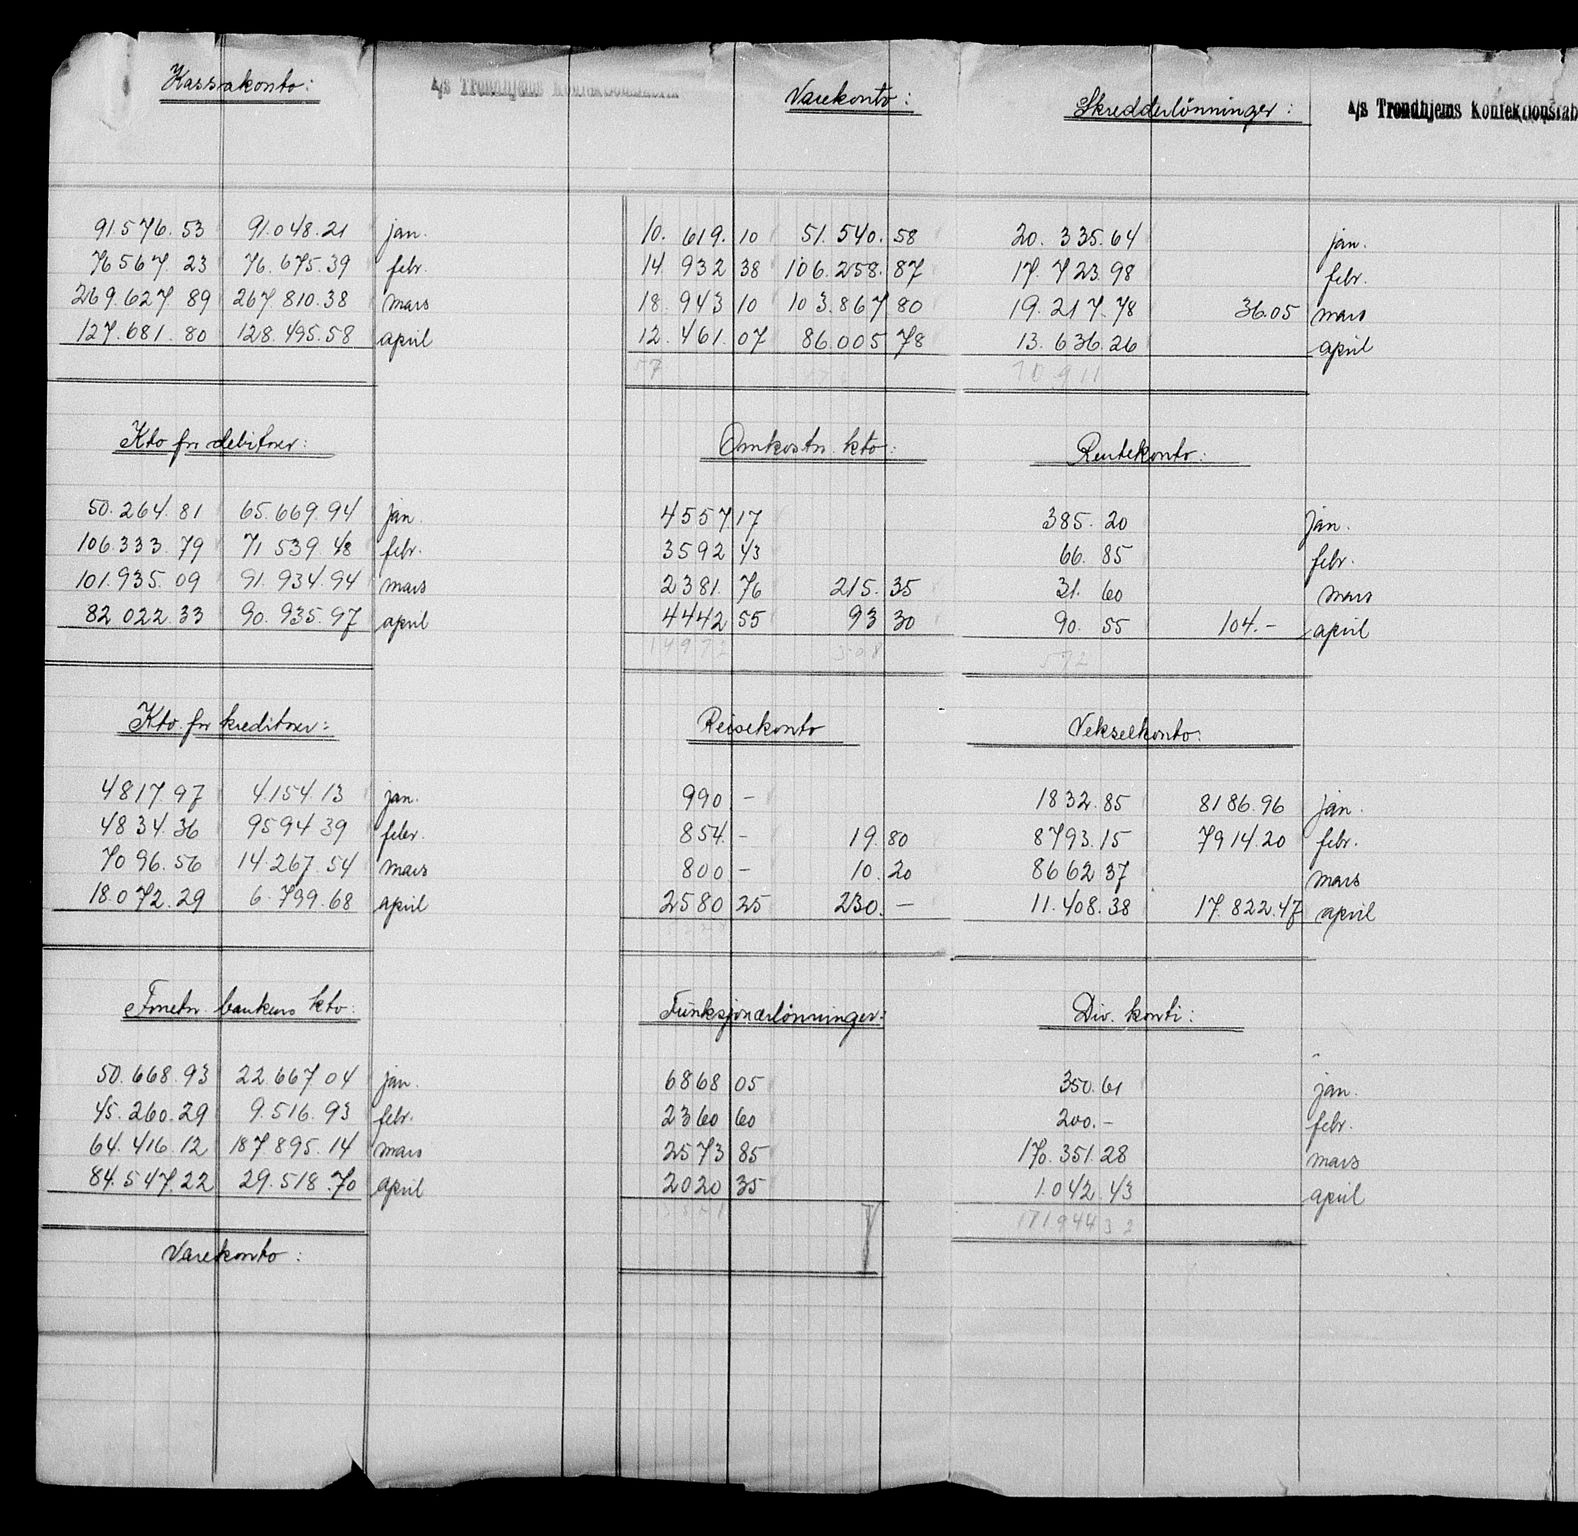 Kassakonto:
91576.53 91.048.21 jan.
76567 23 76.675.39 febr.
269.627 89 267 810.38 mars
127.681.80 128.495.58 april
Kto for debitorer:
50.264.81 65.669.94 jan.
106.333.79 71 539 48 febr.
101.935.09 91.934.94 mars
82 022.33 90.935.97 april
Kto. for kreditorer:
4817.97 4.154.13 jan.
4834.36 9594 39 febr.
7096.56 14.267.54 mars
18.072.29 6.799.68 april
Forretn. bankens kto:
50.668.93 22.667 04 jan.
45.260.29 9.516.93 febr.
64.416.12 187 895.14 mars
84.547.22 29.518.70 april
Varekonto:
A/s Trondhjems Konfektionsfabrik
Varekonto:
10. 619. 10 51.540.58
14 932 38 106.258.87
18.943 10 103.867 80
12.461.07 86.005 78
57
Omkostn kto:
4557 17
3592 43
2381.76 215.35
4442 55 93 30
14972 308
Reisekonto
990 -
854.- 19.80
800 - 10.20
2580 25 230.-
Funksjonærlønninger:
6868 05
2360 60
2573 85
2020 35
Skredderlønninger:
A/s Trondhjems Konfektionsfab
20.335.64 jan.
17.723.98 febr.
19.217.78 36.05 mars
13.636.26 april
70911
Rentekonto:
385.20 jan.
66.85 febr.
31.60 mars
90.55 104.- april
572
Vekselkonto:
1832.85 8186.96 jan.
8793.15 7914.20 febr.
8662 37 mars
11.408.38 17.822.47 april
Div. konti:
350.61 jan.
200.- febr.
170.351.28 mars
1.042.43 april
171.944 32